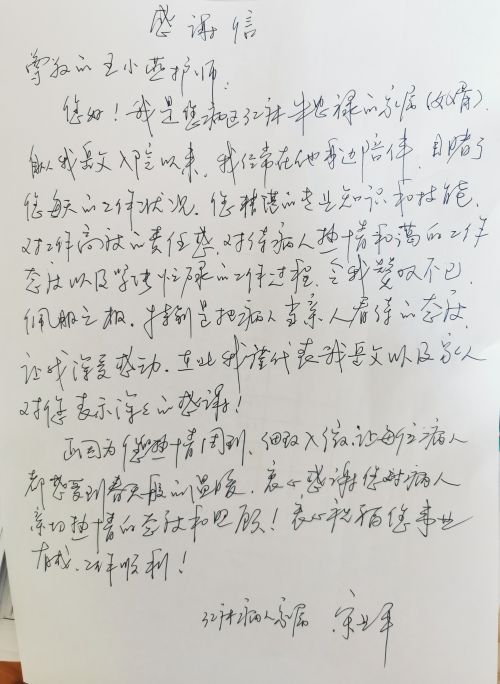 感谢信
尊敬的王小燕护师:
您好!我是您病区32床 牛忠禄的家属(女婿).
自从我岳父入院以来,我经常在他身边陪伴,目睹了
您每天的工作状况.您精湛的专业知识和技能,
对工作高度的责任感,对待病人热情和蔼的工作
态度以及紧张忙碌的工作过程,令我赞叹不已,
佩服之极.特别是把病人当亲人看待的态度,
让我深受感动.在此我谨代表我岳父以及家人
对您表示深深的感谢!
正因为您热情周到,细致入微,让每位病人
都感受到春天般的温暖,衷心感谢您对病人
亲切热情的态度和照顾!衷心祝福您事业
有成,工作顺利!
32床病人家属